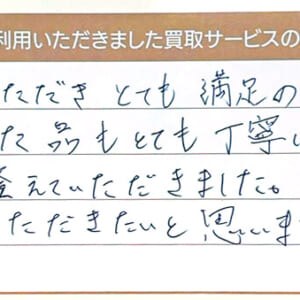 利用いただきました買取サービスの
ただき とても 満足の
た 品もとても丁寧
えていただきました。
ただきたいと思いま